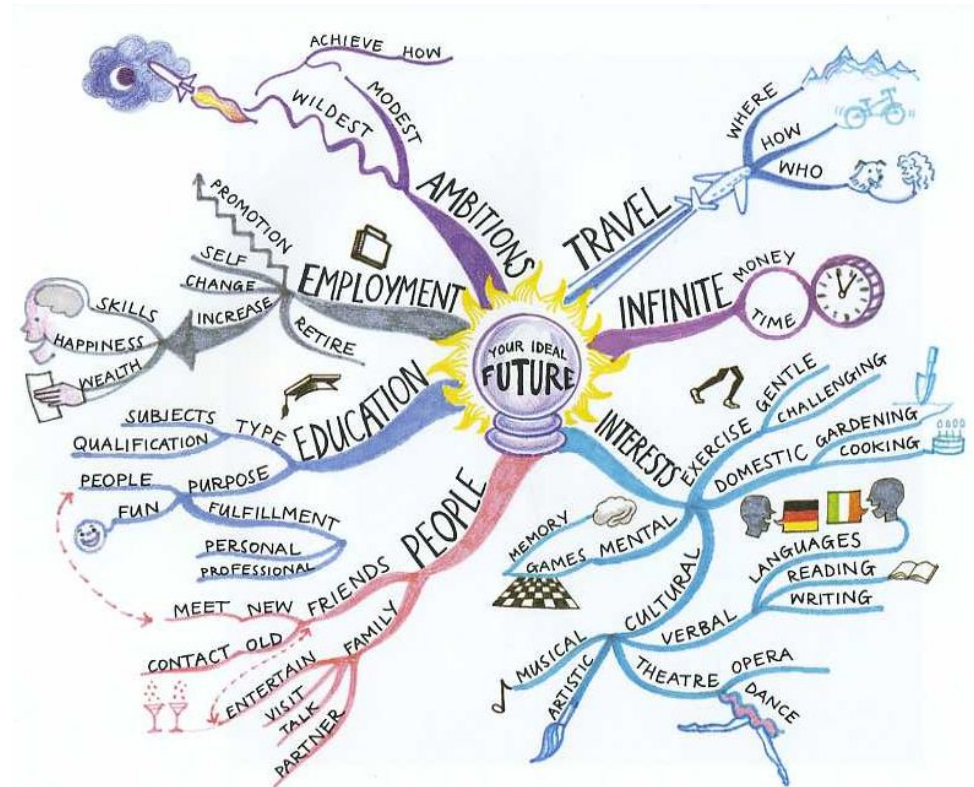 YOUR IDEAL
FUTURE
AMBITIONS
MODEST
WILDEST
ACHIEVE HOW
TRAVEL
WHERE
HOW
WHO
INFINITE
MONEY
TIME
INTERESTS
EXERCISE
GENTLE
CHALLENGING
DOMESTIC
GARDENING
COOKING
MENTAL
GAMES
MEMORY
CULTURAL
VERBAL
LANGUAGES
READING
WRITING
THEATRE
OPERA
DANCE
ARTISTIC
MUSICAL
PEOPLE
FRIENDS
MEET NEW
CONTACT OLD
FAMILY
ENTERTAIN
VISIT
TALK
PARTNER
EDUCATION
TYPE
SUBJECTS
QUALIFICATION
PURPOSE
PEOPLE
FUN
FULFILLMENT
PERSONAL
PROFESSIONAL
EMPLOYMENT
PROMOTION
SELF
CHANGE
INCREASE
SKILLS
HAPPINESS
WEALTH
RETIRE